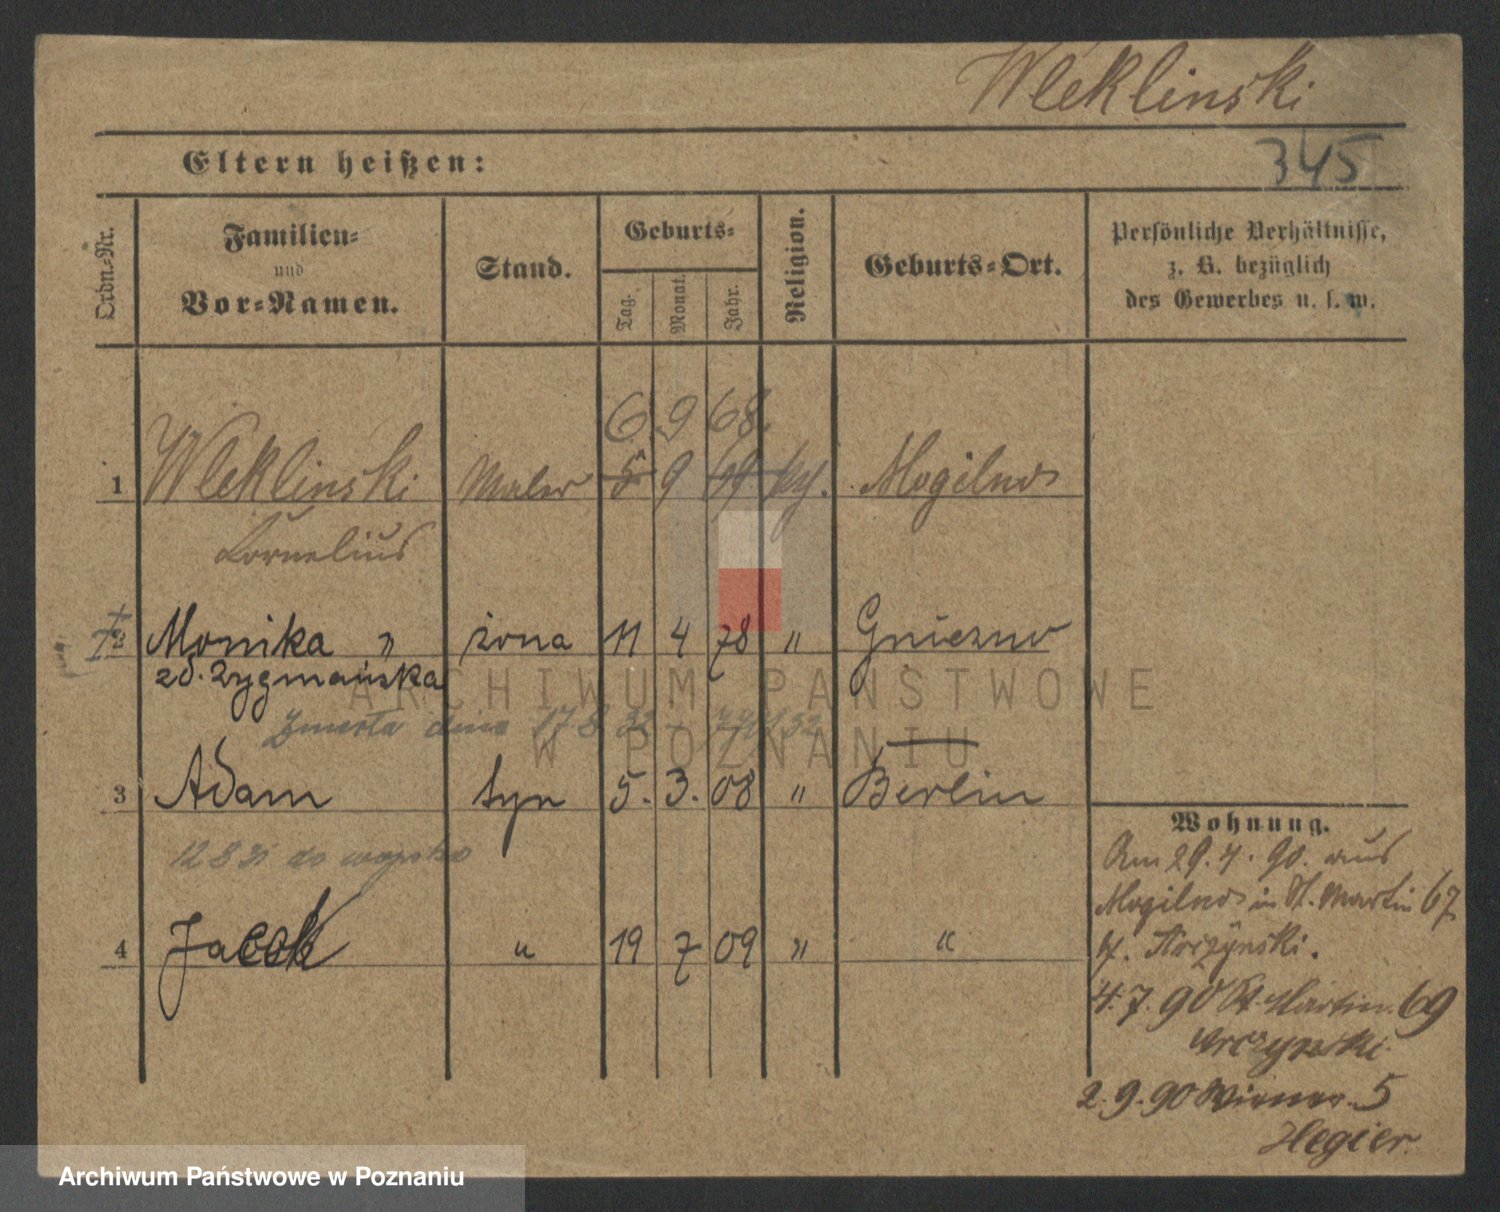 Wleklinski
Eltern heißen:
345
Ordn.-Nr.
Familien-
und
Vor-Namen.
Stand.
Geburts-
Tag.
Monat.
Jahr.
Religion.
Geburts-Ort.
Persönliche Verhältnisse,
z. B. bezüglich
des Gewerbes u. s. w.
6 9 68.
1 Wleklinski Maler 5 9 69 Mogilno
Kornelius
2 Monika " żona 11 4 78 " Gniezno
zd. Zygmańska
Zmarła dnia 17 8 32
3 Adam syn 5. 3. 08 " Berlin
12 8 31 do wojska
4 Jacek " 19 7 09 " "
Wohnung.
Am 29. 4. 90. aus
Mogilno in St. Martin 67
b/.
4. 7. 90 St. Martin 69
2. 9. 90 Wiener 5
Hegier.
ARCHIWUM PAŃSTWOWE
W POZNANIU
Archiwum Państwowe w Poznaniu